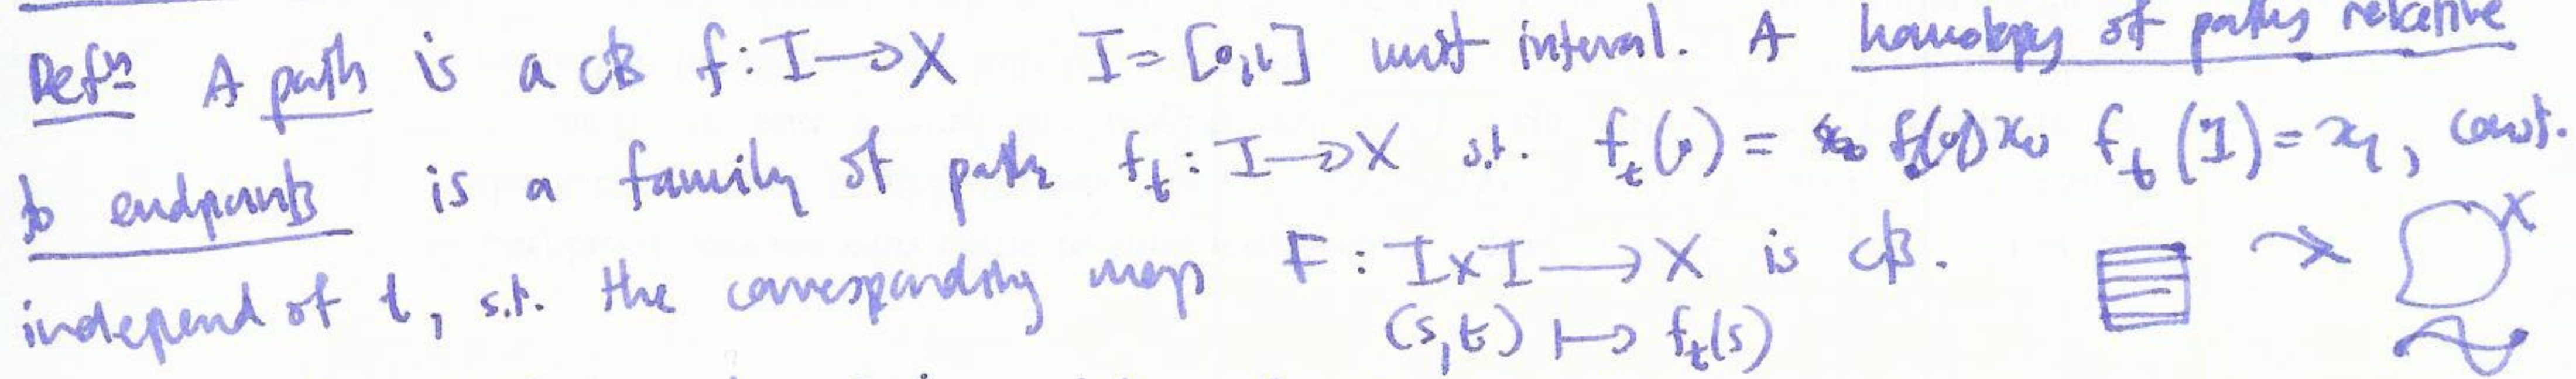 Defn A path is a cts f: I → X I = [0,1] unit interval. A homotopy of paths relative
to endpoints is a family of paths f_t: I → X s.t. f_t(0) = x_0 f_t(1) = x_1, const.
independ of t, s.t. the corresponding map F: I×I → X is cts. X
(s,t) ↦ f_t(s)